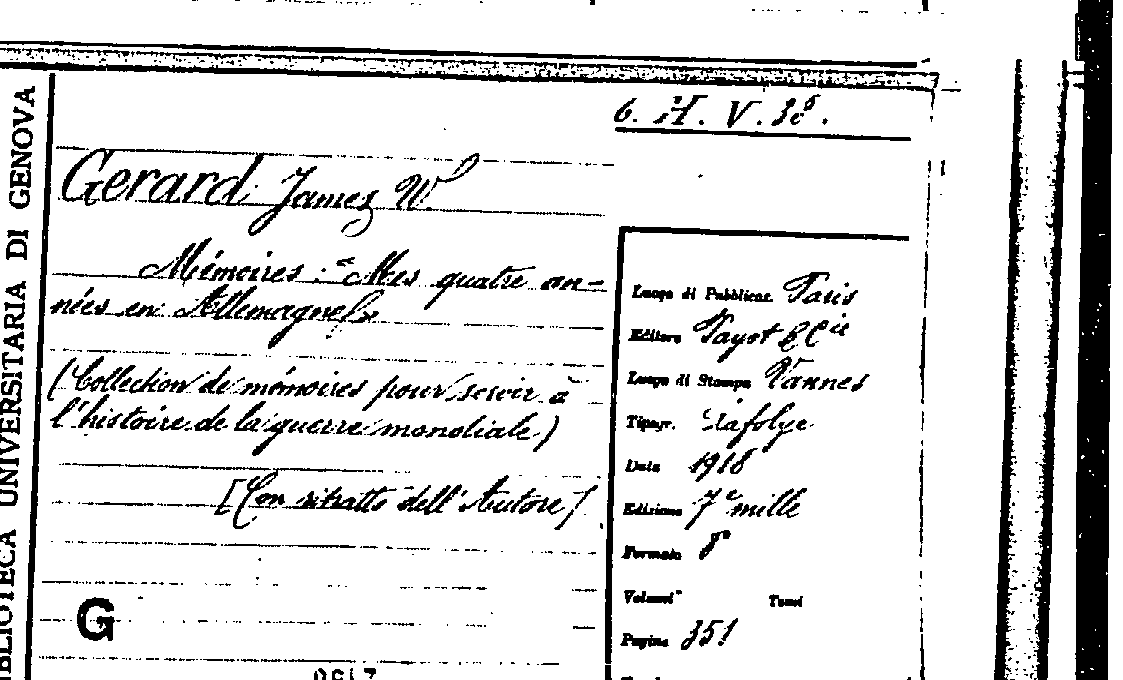 BIBLIOTECA UNIVERSITARIA DI GENOVA
6. H. V. 38.
Gerard James W.
Mémoires : "Mes quatre an-
nées en Allemagne"
(Collection de mémoires pour servir à
l'histoire de la guerre mondiale)
[Con ritratto dell'Autore]
G
Luogo di Pubblicaz. Paris
Editore Payot & Cie
Luogo di Stampa Vannes
Tipogr. Lafolye
Data 1918
Edizione 7e mille
Formato 8°
Volumi Tomi
Pagine 351